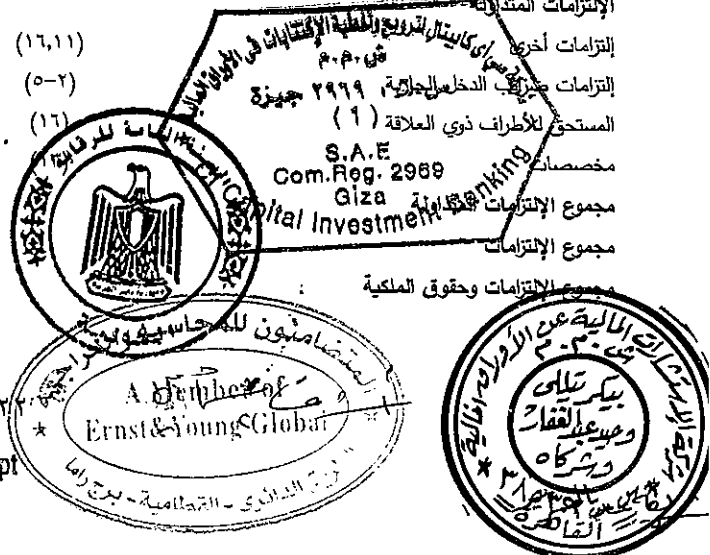 الإلتزامات المتداولة
إلتزامات أخرى (١٦,١١)
إلتزامات ضرائب الدخل الجارية (٢-٥)
المستحق للأطراف ذوي العلاقة (١٦)
مخصصات
مجموع الإلتزامات المتداولة
مجموع الإلتزامات
مجموع الإلتزامات وحقوق الملكية
كابيتال لترويج وتغطية الإكتتابات في الأوراق المالية
ش.م.م
٢٩٦٩ جيزة
(١)
S.A.E
Com.Reg. 2969
Giza
Capital Investment Banking
العامة للرقابة
المتضامنون للمحاسبة
A Member of
Ernst & Young Global
الطريق الدائري - القطامية - برج راما
المالية عن الأوراق المالية
ش.م.م
بيكر تيللي
وحيد عبد الغفار
وشركاه
القاهرة
pt